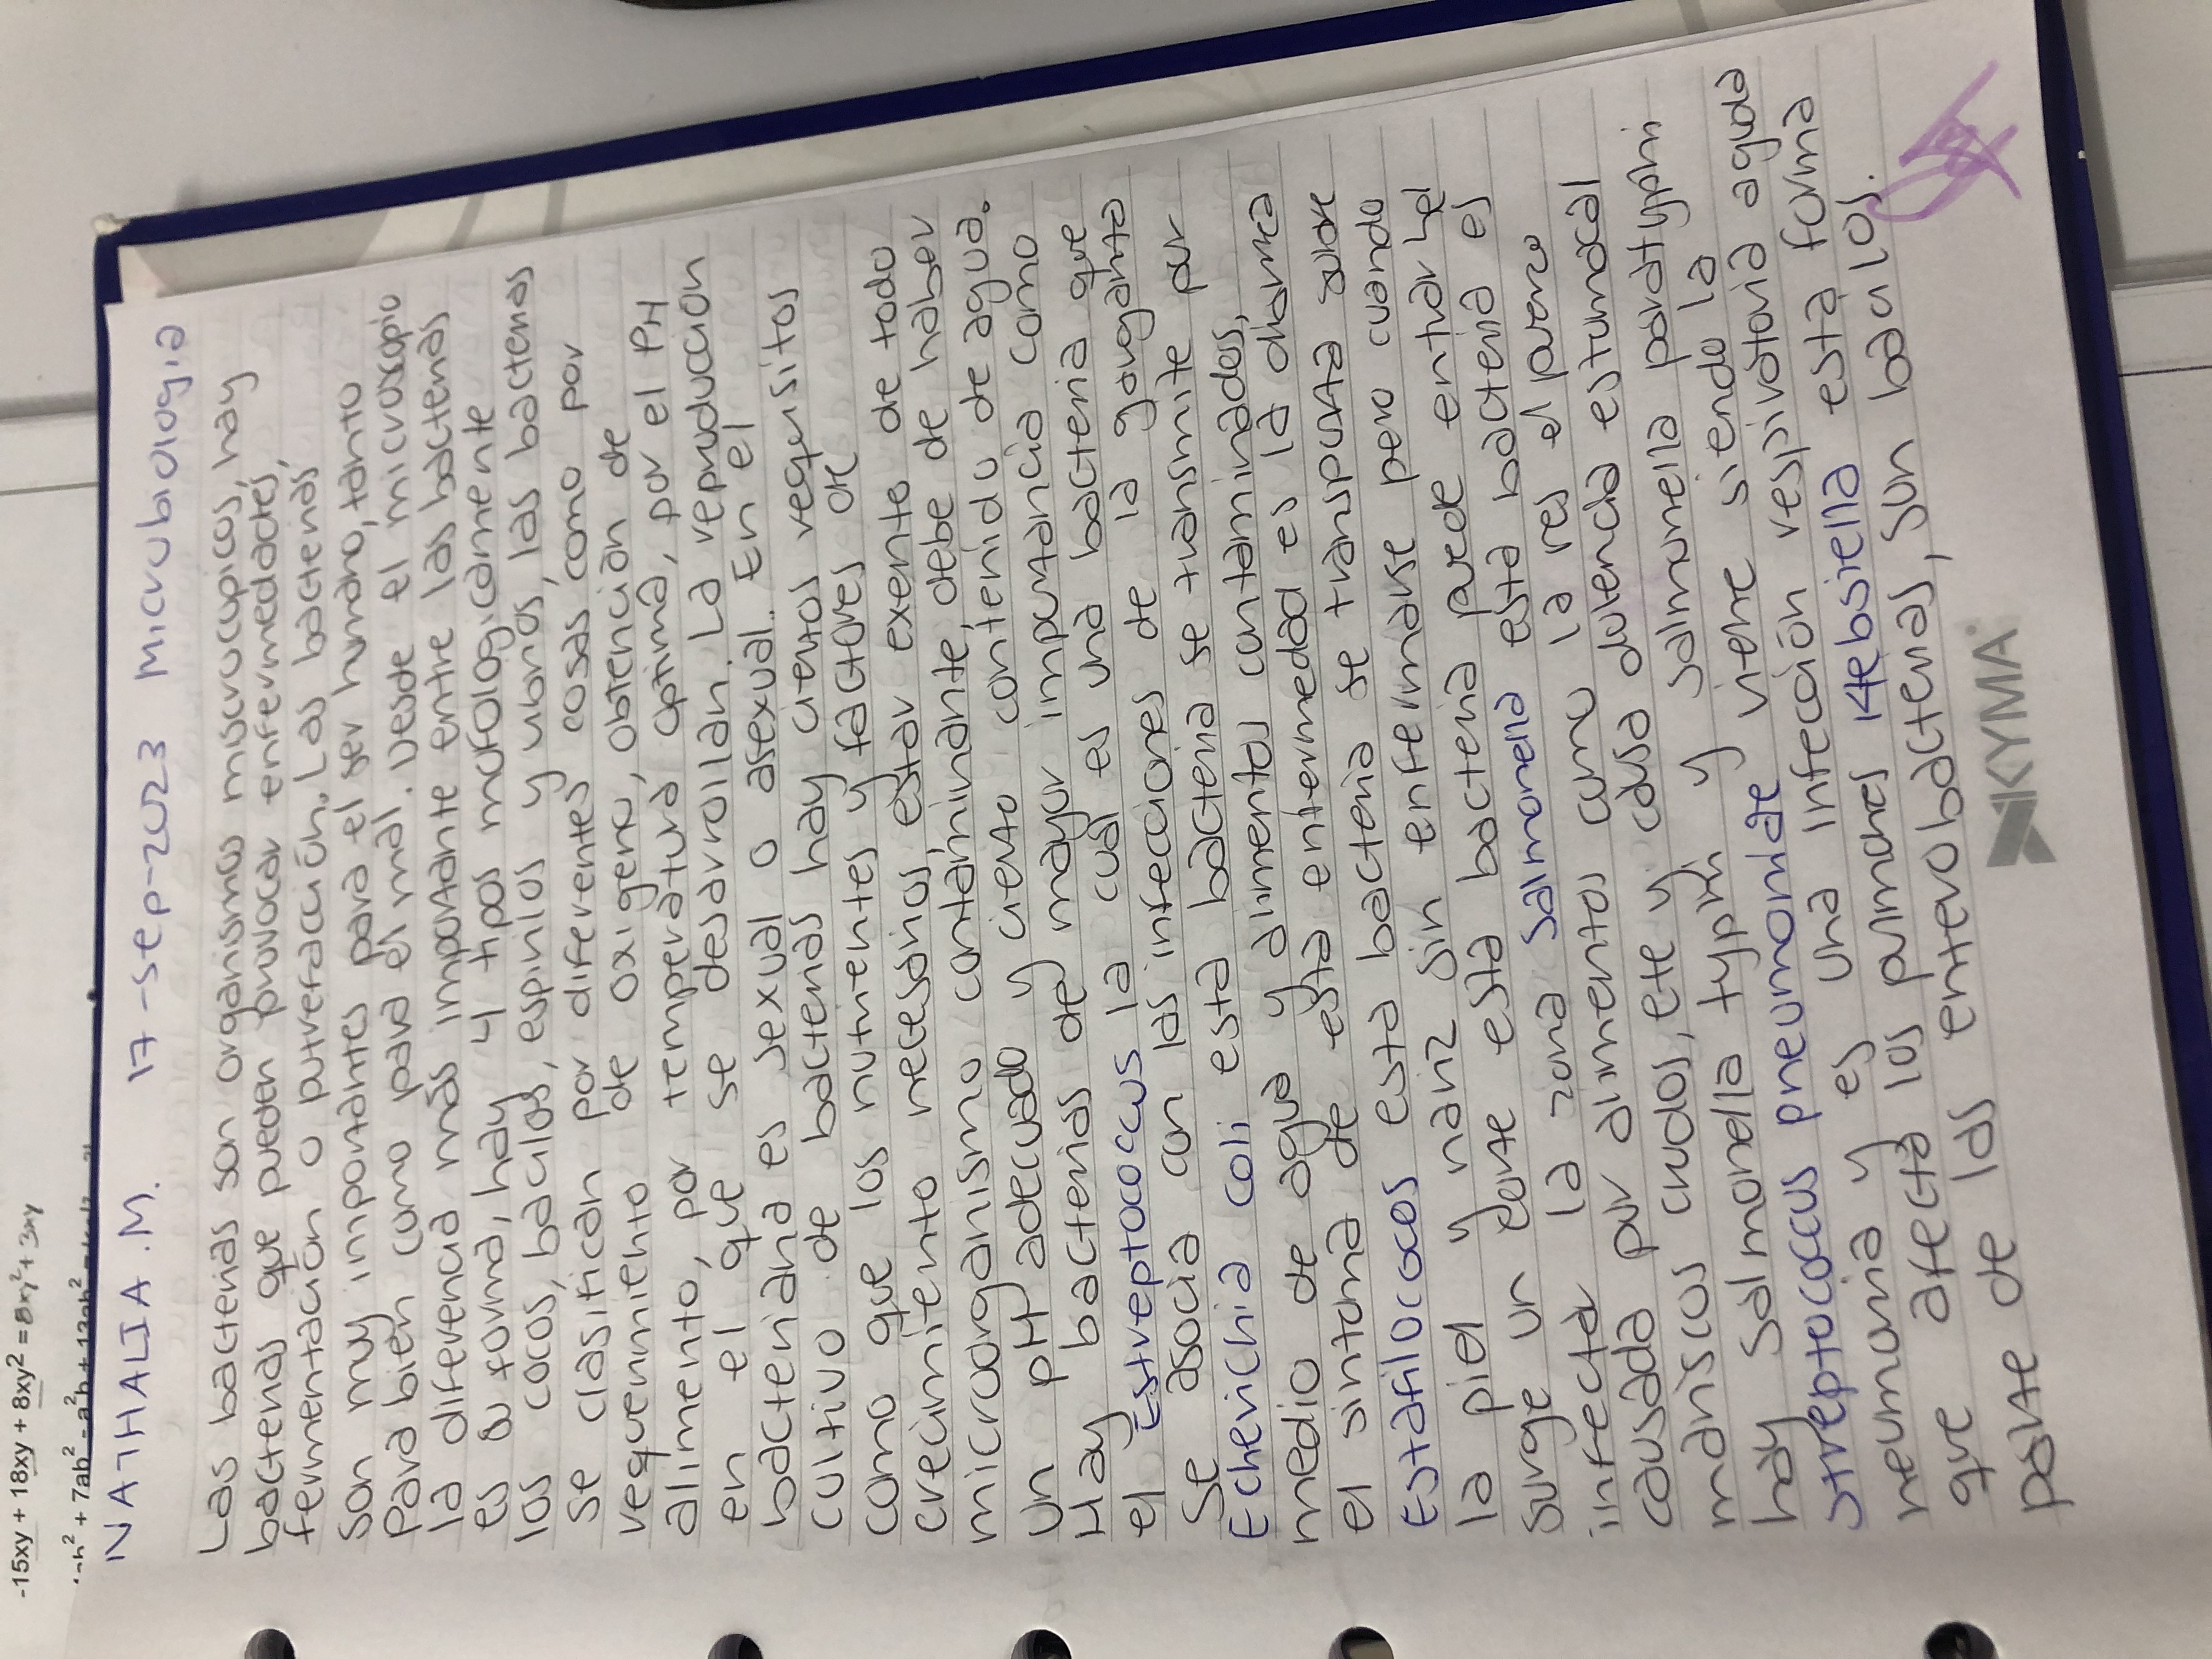 -15xy + 18xy + 8xy² = 8xy² + 3xy
NATHALIA.M. 17-sep-2023 Microbiologia
Las bacterias son organismos miscrocupicos, hay
bacterias que pueden provocar enfermedades,
fermentación o putrefacción. Las bacterias,
son muy importantes para el ser humano, tanto
para bien como para el mal. Desde el microscopio
la diferencia más importante entre las bacterias
es su forma, hay 4 tipos mofologicamente
los cocos, bacilos, espirilos y vibrios, las bacterias
se clasifican por diferentes cosas como por
requerimiento de oxigeno, obtención de
alimento, por temperatura optima, por el PH
en el que se desarrollan. La reproducción
bacteriana es sexual o asexual. En el
cultivo de bacterias hay ciertos requisitos
como que los nutrientes y factores de
crecimiento necesarios, estar exento de todo
microorganismo contaminante, debe de haber
un pH adecuado y cierto contenido de agua.
Hay bacterias de mayor importancia como
el Estreptococcus la cual es una bacteria que
se asocia con las infecciones de la garganta
Echerichia coli esta bacteria se transmite por
medio de agua y alimentos contaminados,
el sintoma de esta enfermedad es la diarrea
Estafilococos esta bacteria se transporta sobre
la piel y nariz sin enfermarse pero cuando
surge un corte esta bacteria puede entrar he
infectar la zona Salmonella esta bacteria es
causada por alimentos como la res el puerco
mariscos crudos, etc y causa dolencia estomacal
hay Salmonella typhi y salmonella paratyphi
Streptococcus pneumoniae viene siendo la
neumonia y es una infección respiratoria aguda
que afecta los pulmones Klebsiella esta forma
parte de las enterobacterias, son bacilos.
KYMA